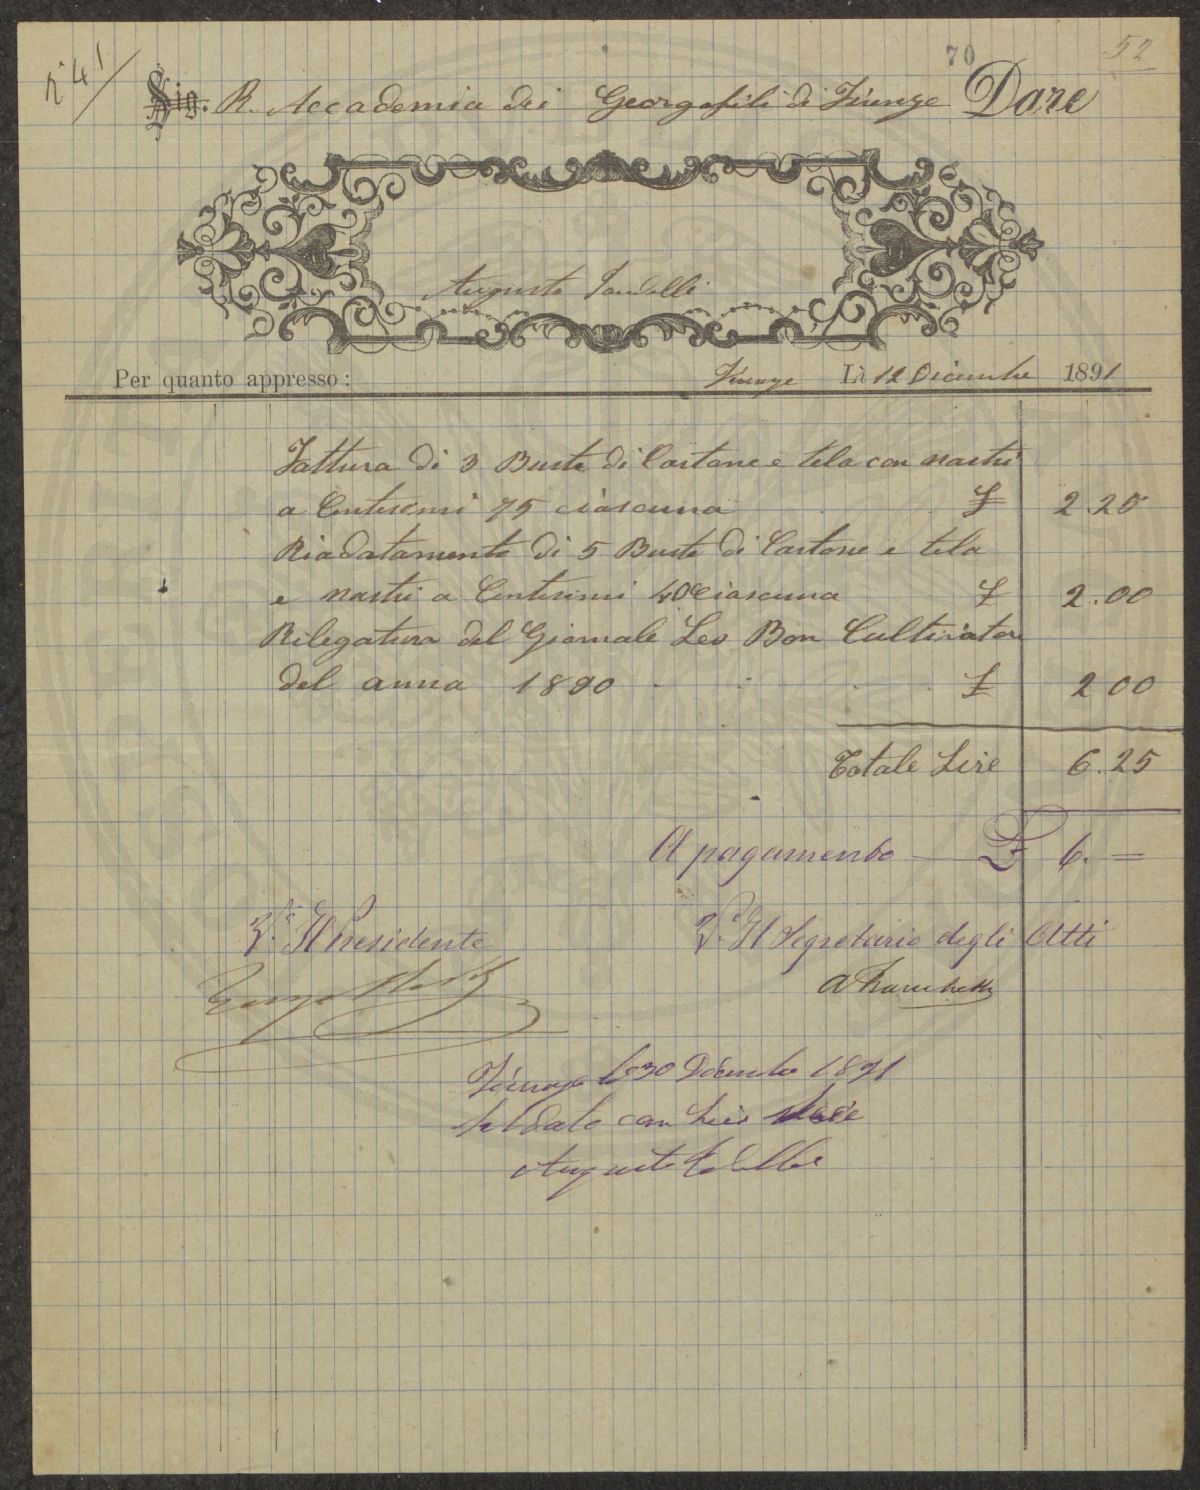 70
52
N° 41
Sig. R. Accademia dei Georgofili di Firenze Dare
Augusto
Per quanto appresso: Firenze Lì 12 Dicembre 1891
Fattura di 3 Buste di Cartone e tela con nastri
a Centesimi 75 ciascuna £ 2.25
Riadatamento di 5 Buste di Cartone e tela
e nastri a Centesimi 40 Ciascuna £ 2.00
Rilegatura del Giornale Leo Bon Cultivator
del anna 1890 £ 2 00
Totale Lire 6.25
A pagamento £ 6. =
V.° Il Presidente
V.° Il Segretario degli Atti
A Franchetti
Firenze li 30 Dicembre 1891
Saldato con Lire
Augusto